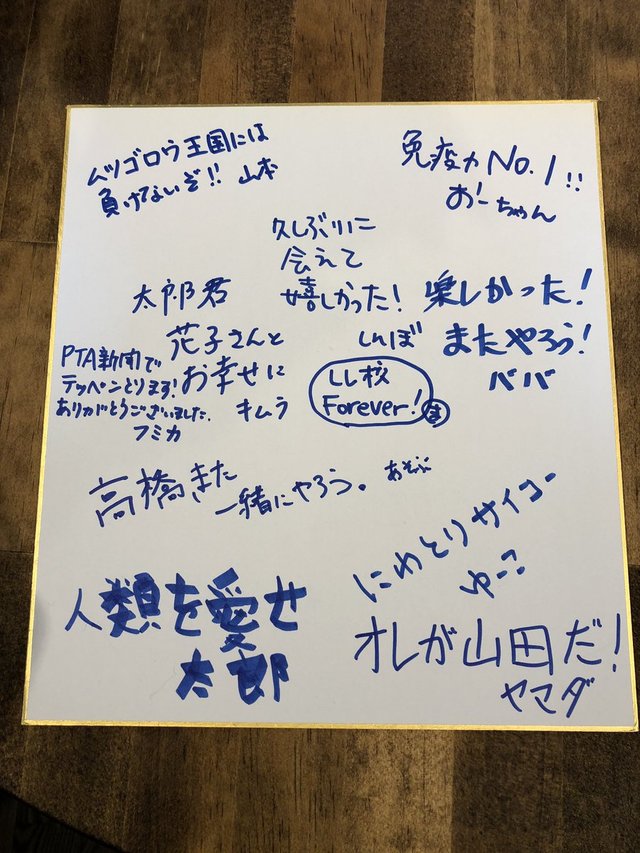 ムツゴロウ王国には
負けないぞ!! 山本
免疫力No.1!!
おーちゃん
久しぶりに
会えて
嬉しかった!
しんぼ
楽しかった!
またやろう!
ババ
太郎君
花子さんと
お幸せに
キムラ
PTA新聞で
テッペンとります!
ありがとうございました.
フミカ
LL校
Forever!
高橋また
一緒にやろう。あそぶ
にわとりサイコー
ゆーこ
人類を愛せ
太郎
オレが山田だ!
ヤマダ